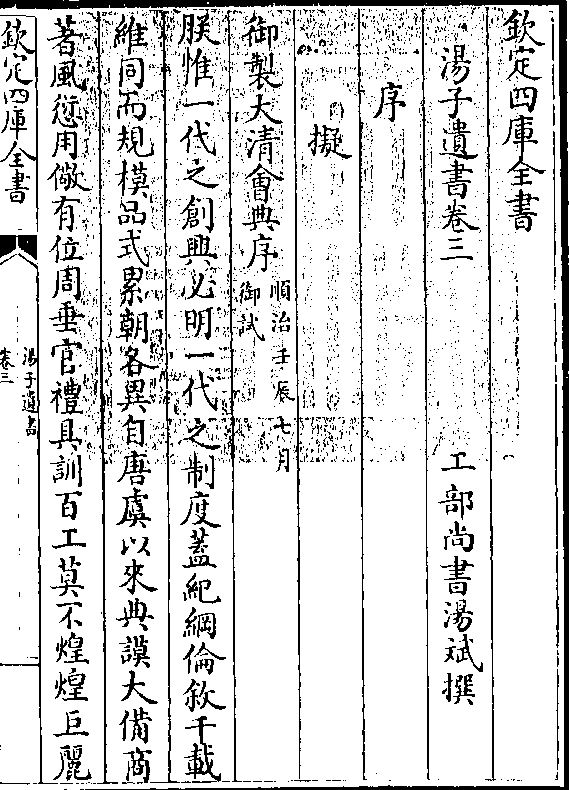 欽定四庫全書
湯子遺書卷三
工部尚書湯斌撰
序
擬
御製大清會典序順治壬辰七月
御試
朕惟一代之創興必明一代之制度蓋紀綱倫敘千載
維同而規模品式累朝各異自唐虞以來典謨大備商
著風愆用儆有位周垂官禮具訓百工莫不煌煌巨麗
欽定四庫全書
湯子遺書
卷三